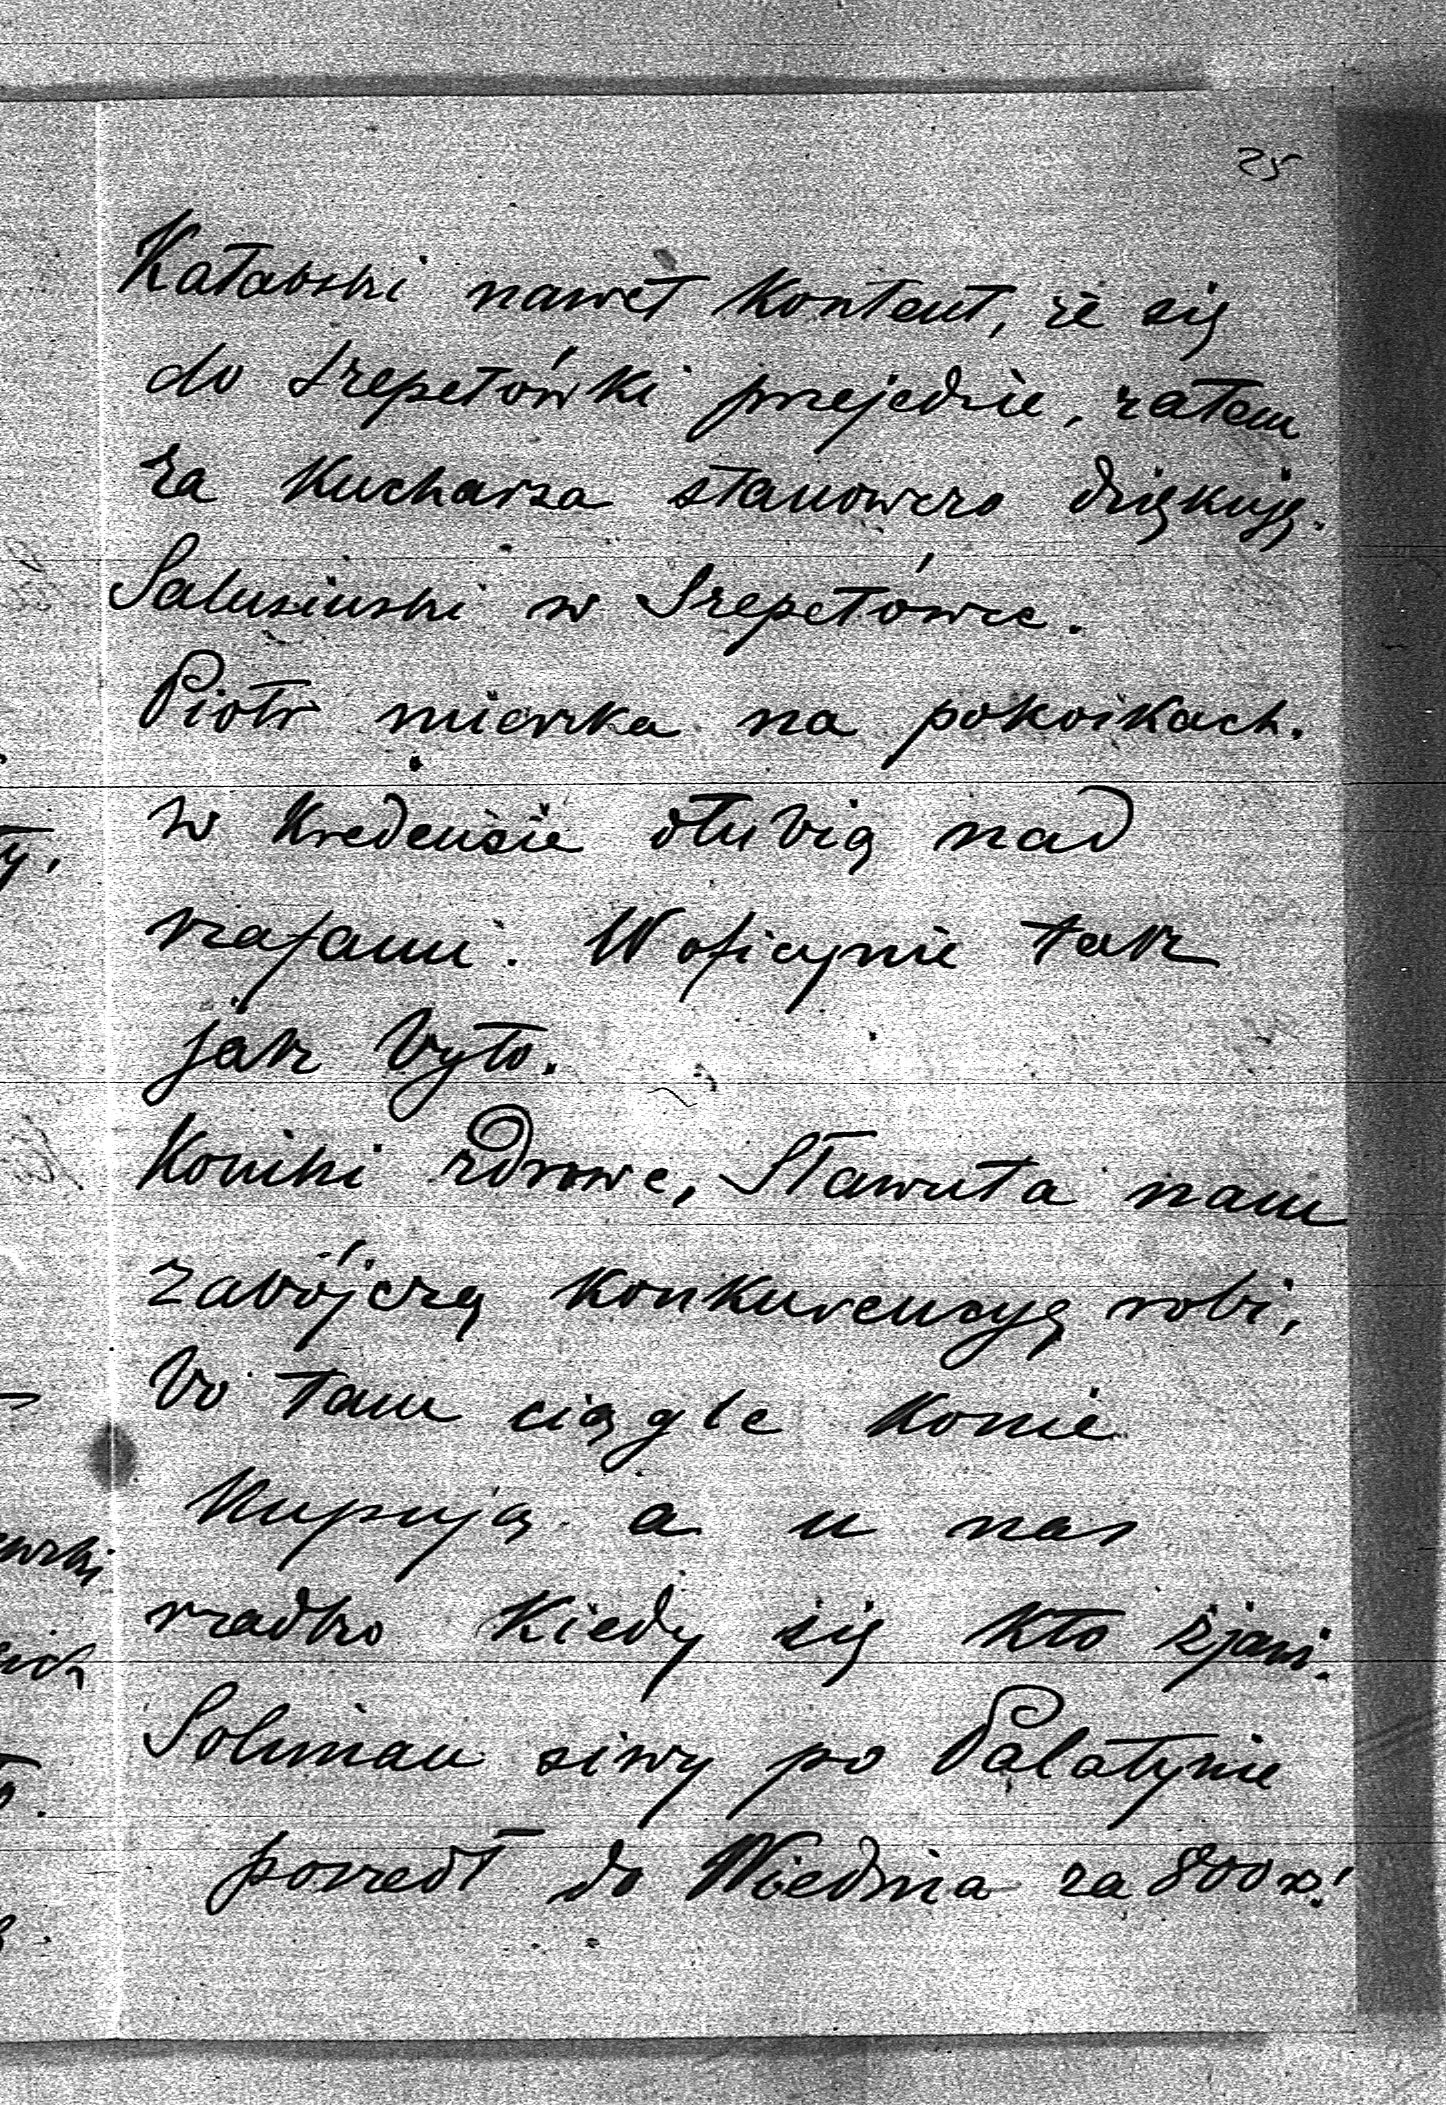 25
Katabski nawet kontent, że się
do Szepetówki przejedzie, zatem
za kucharza stanowczo dziękuję.
Salusinski w Szepetówce.
Piotr mieszka na pokoikach.
w kredensie dłubią nad
szafami. W oficynie tak
jak było.
Koniki zdrowe, Sławuta nam
zabójczą konkurencyę robi,
bo tam ciągle konie
kupują a u nas
rzadko kiedy się kto zjawi.
Soliman siwy po Palatynie
poszedł do Wiednia za 800